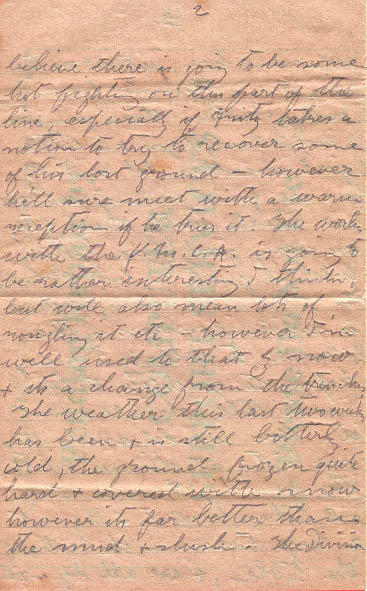 2
believe there is going to be some
hot fighting on this part of the
line especially if Fritz takes a
notion to try to recover some
of his lost ground – however
he'll sure meet with a warm
reception if he tries it. The work
with the Y.M.C.A. is going to
be rather interesting I think,
but will also mean lots of
roughing it etc – however I'm
well used to that by now
+ it's a change from the trenches
The weather this last two weeks
has been + is still bitterly
cold, the ground frozen quite
hard + covered with snow
however its far better than
the mud + slush – The Division